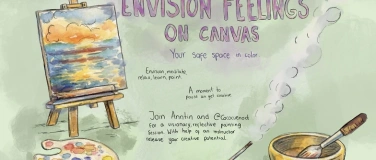 ENVISION FEELINGS
ON CANVAS
Your safe space in color.
Envision, meditate
relax, learn, paint.
A moment to
pause and get creative
Join Anntin and
for a visionary, reflective painting
session. With help of an instructor
your creative potential.